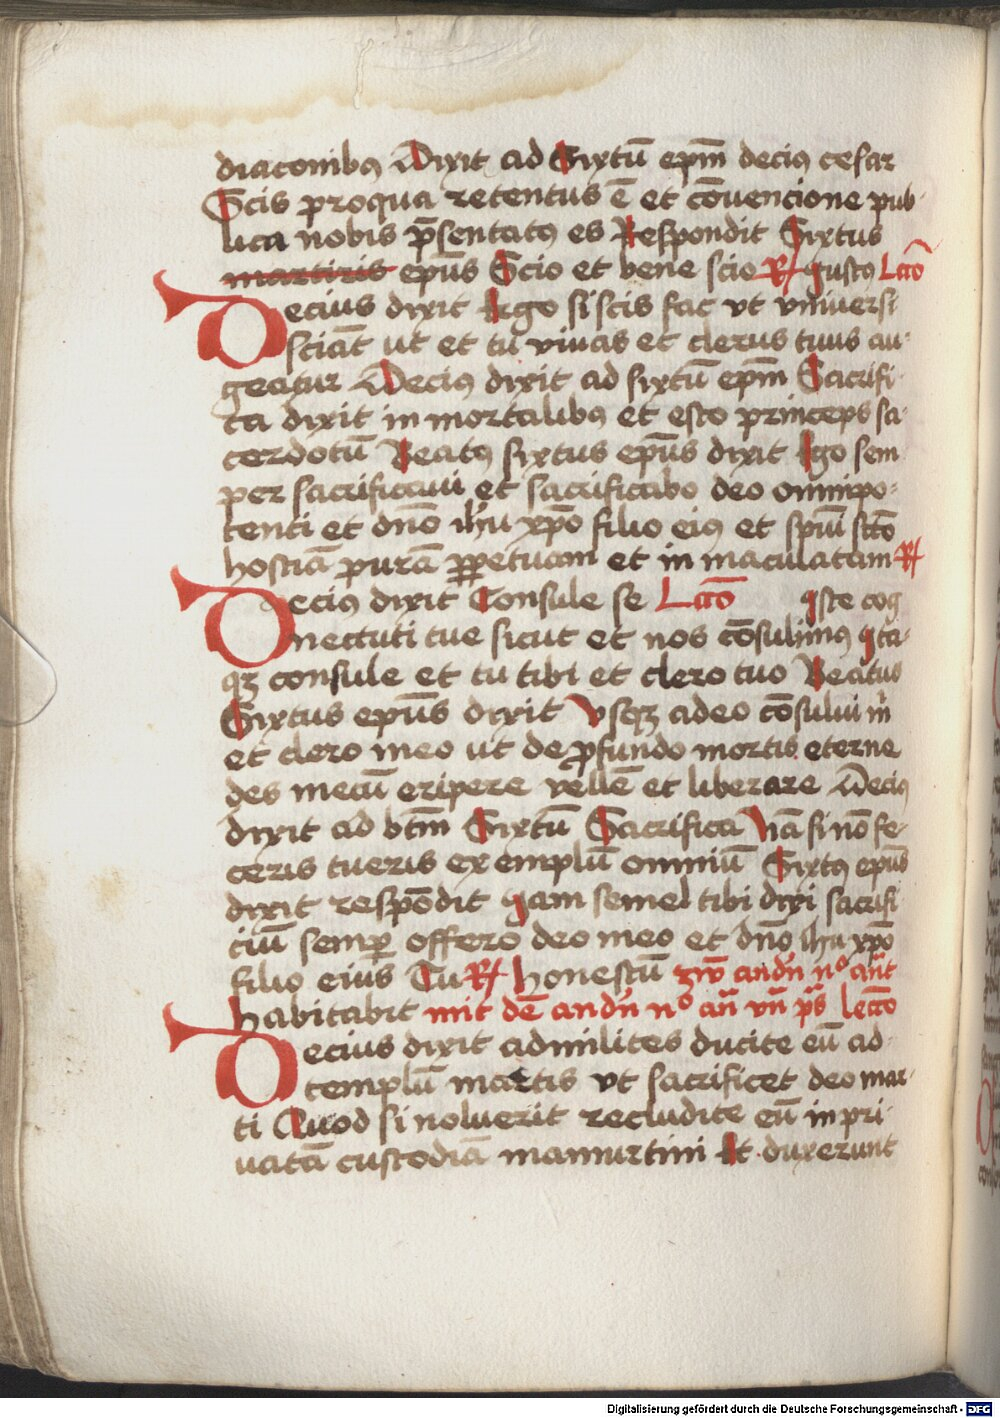 diaconibꝯ Dixit ad Sixtū ep̄m deciꝯ cesar
Scis proqua retentus ē et cōuencione pub-
lica nobis p̄sentatꝯ es Respondit Sixtus
martiris ep̄us Scio et bene scio R/ Iustꝯ Lc̄to
Decius dixit Ergo si scis fac vt vniuersi
sciāt ut et tu viuas et clerus tuus au-
geatur Deciꝯ dixit ad sixtū ep̄m Sacrifi-
ca dixit in mortalibꝯ et esto princeps sa-
cerdotū Beatꝯ sixtus ep̄us dixit Ego sem
per sacrificaui et sacrificabo deo omnipo-
tenti et dn̄o ih̄u xp̄o filio eiꝯ et sp̄ui sc̄to
hostiā purā ꝑpetuam et in maculatam R/
Deciꝯ dixit Consule se Lc̄to Iste cog
nectuti tue sicut et nos cōsulimꝯ Ita-
qꝫ consule et tu tibi et clero tuo Beatus
Sixtus ep̄us dixit Vsqꝫ adeo cōsului m̄
et clero meo ut de ꝓfundo mortis eterne
des mecū eripere vellē et liberare Deciꝯ
dixit ad bt̄m Sixtū Sacrifica Nā si nō fe-
ceris tu eris exemplū omniū Sixtꝯ ep̄us
dixit respōdit Iam semel tibi dixi sacrifi
ciū semꝑ offero deo meo et dn̄o ih̄u xp̄o
filio eius Tu R/ honestū n° an̄t
habitabit mit dē n° an̄ vn̄ ps̄ lecc̄o
Decius dixit ad milites ducite eū ad-
templū martis vt sacrificet deo mar-
ti Quod si noluerit recludite eū in pri-
uatā custodiā mamurtini Et duxerunt
Digitalisierung gefördert durch die Deutsche Forschungsgemeinschaft - DFG